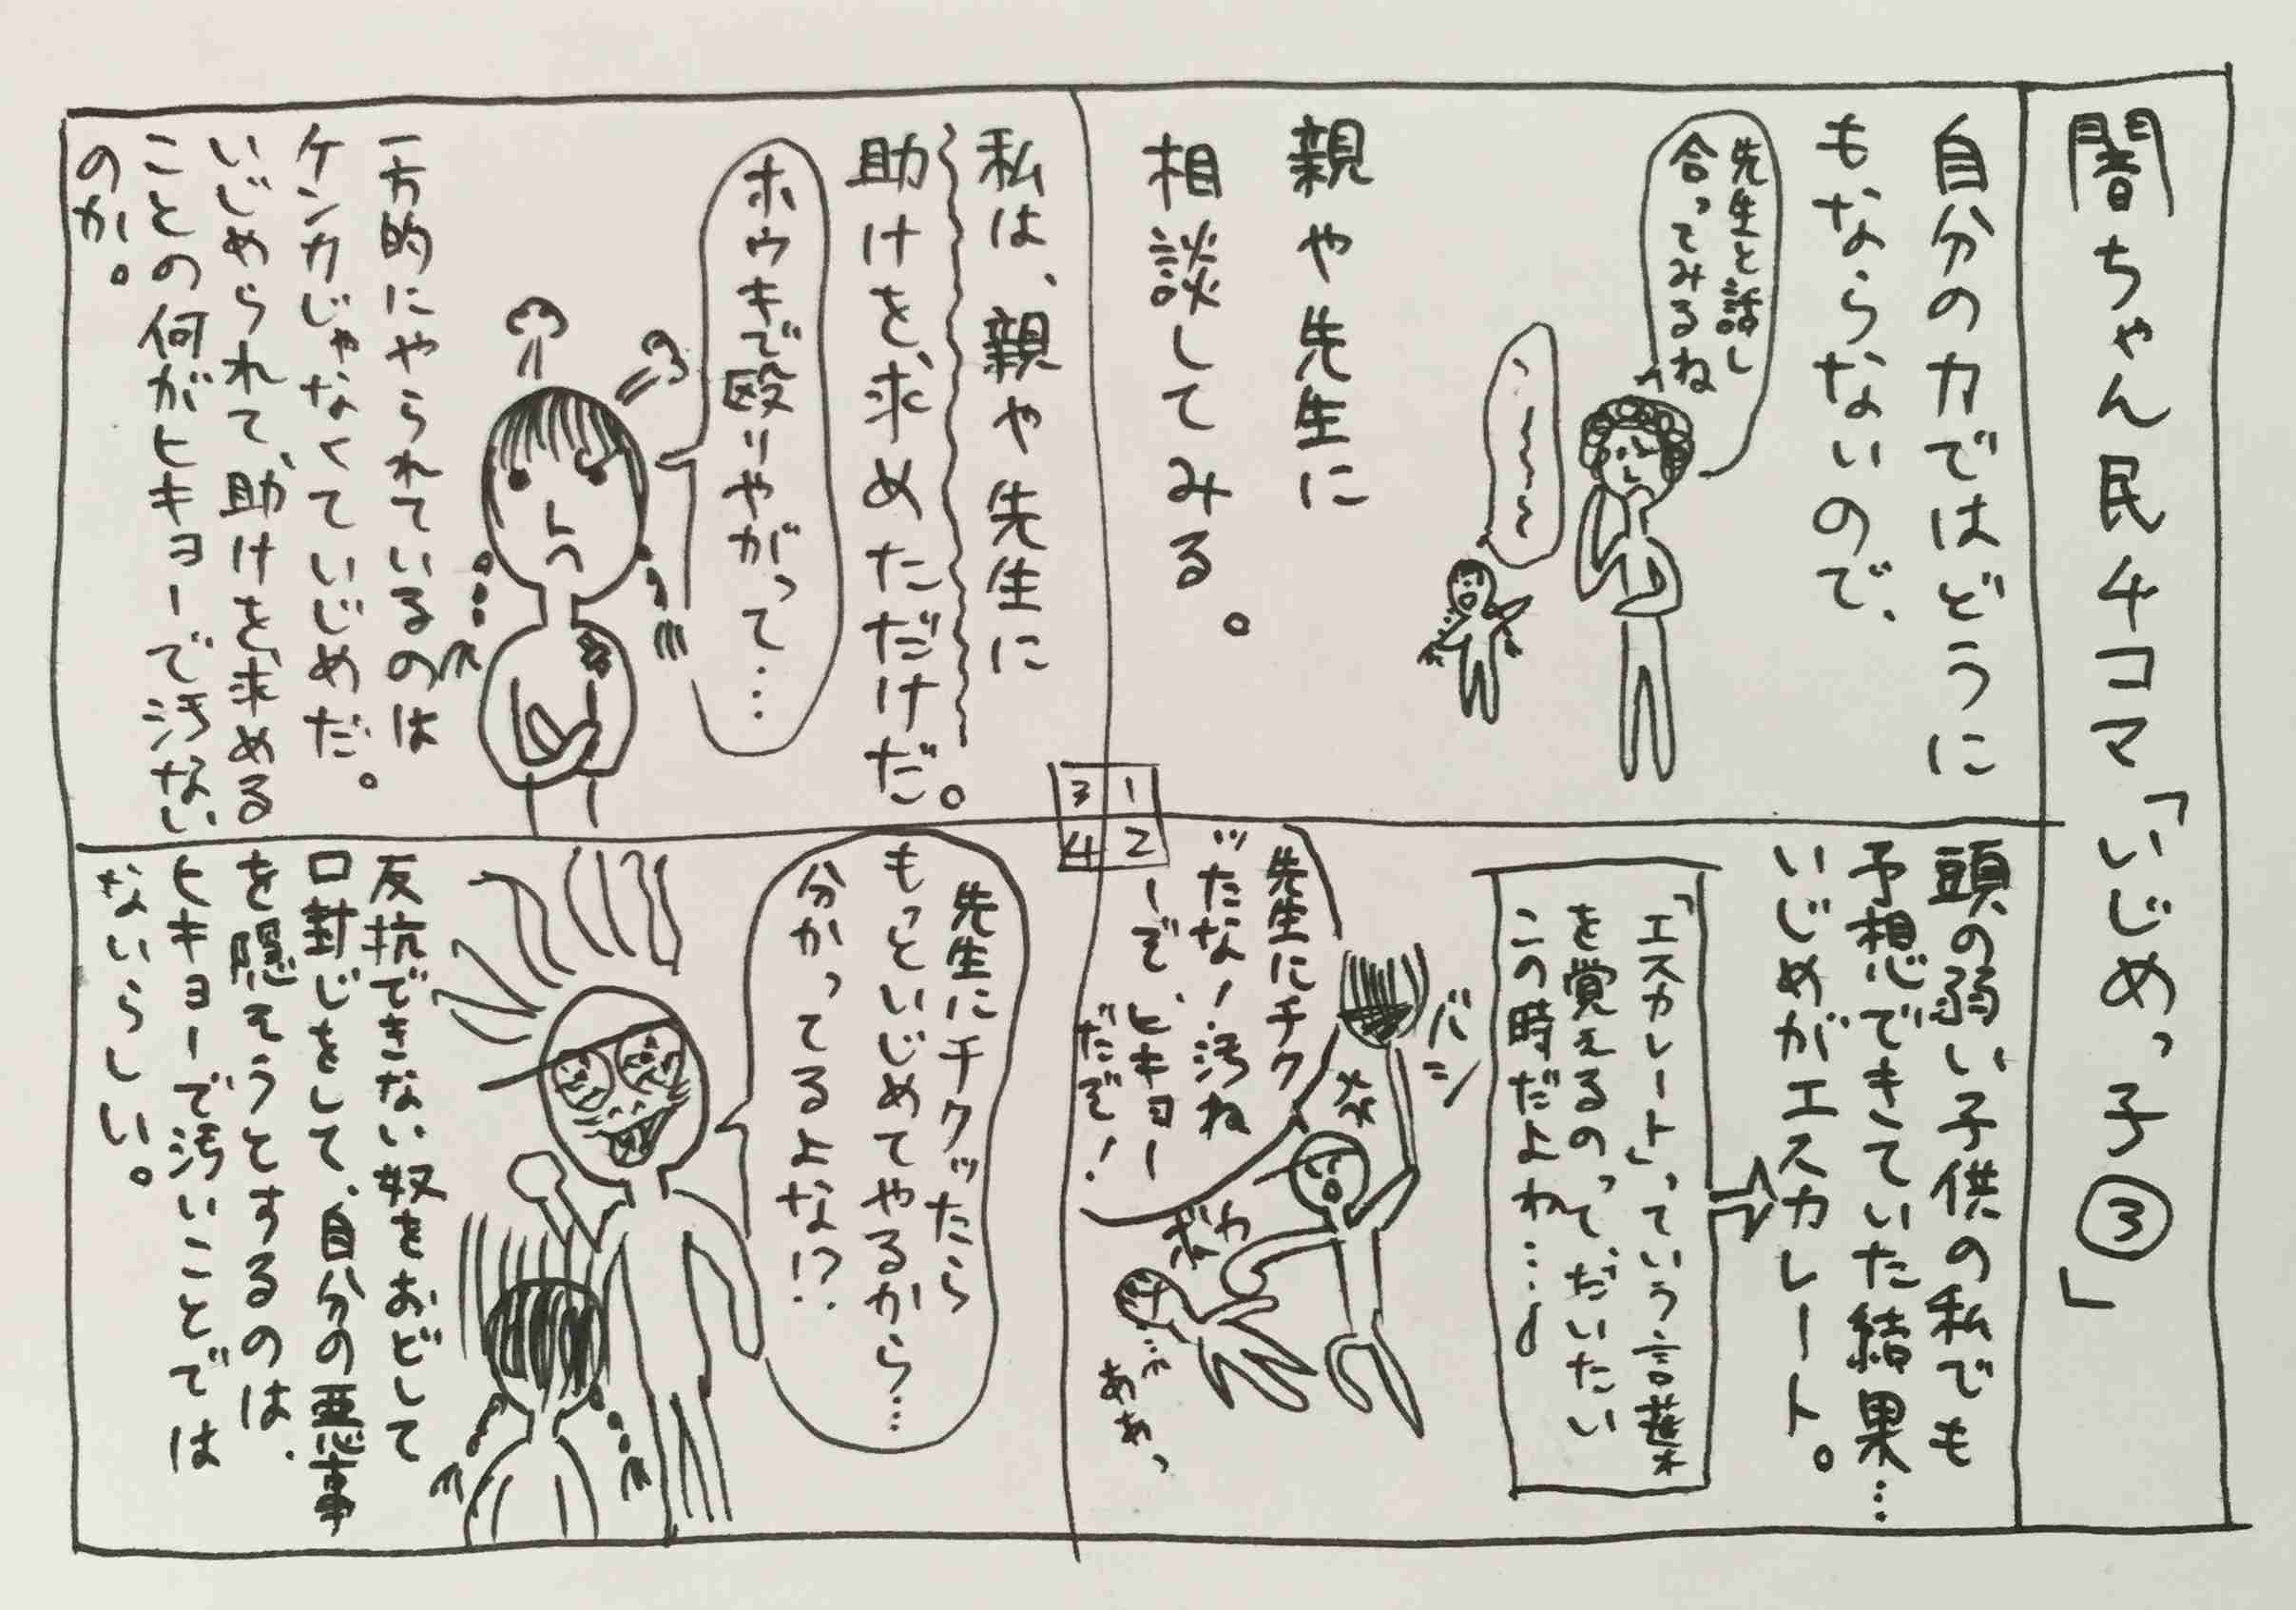 闇ちゃん民4コマ「いじめっ子③」
自分の力ではどうに
もならないので、
先生と話し
合ってみるね
親や先生に
相談してみる。
1
2
3
4
頭の弱い子供の私でも
予想できていた結果…
いじめがエスカレート。
「エスカレート」っていう言葉
を覚えるのって、だいたい
この時だよね…。
バシ
先生にチク
ッたな！汚ね
ーぞ、ヒキョー
だぞ！
ああっ
私は、親や先生に
助けを求めただけだ。
ホウキで殴りやがって…
一方的にやられているのは
ケンカじゃなくていじめだ。
いじめられて、助けを求める
ことの何がヒキョーで汚ない
のか。
先生にチクッたら
もっといじめてやるから…
分かってるよな!?
反抗できない奴をおどして
口封じをして、自分の悪事
を隠そうとするのは、
ヒキョーで汚いことでは
ないらしい。